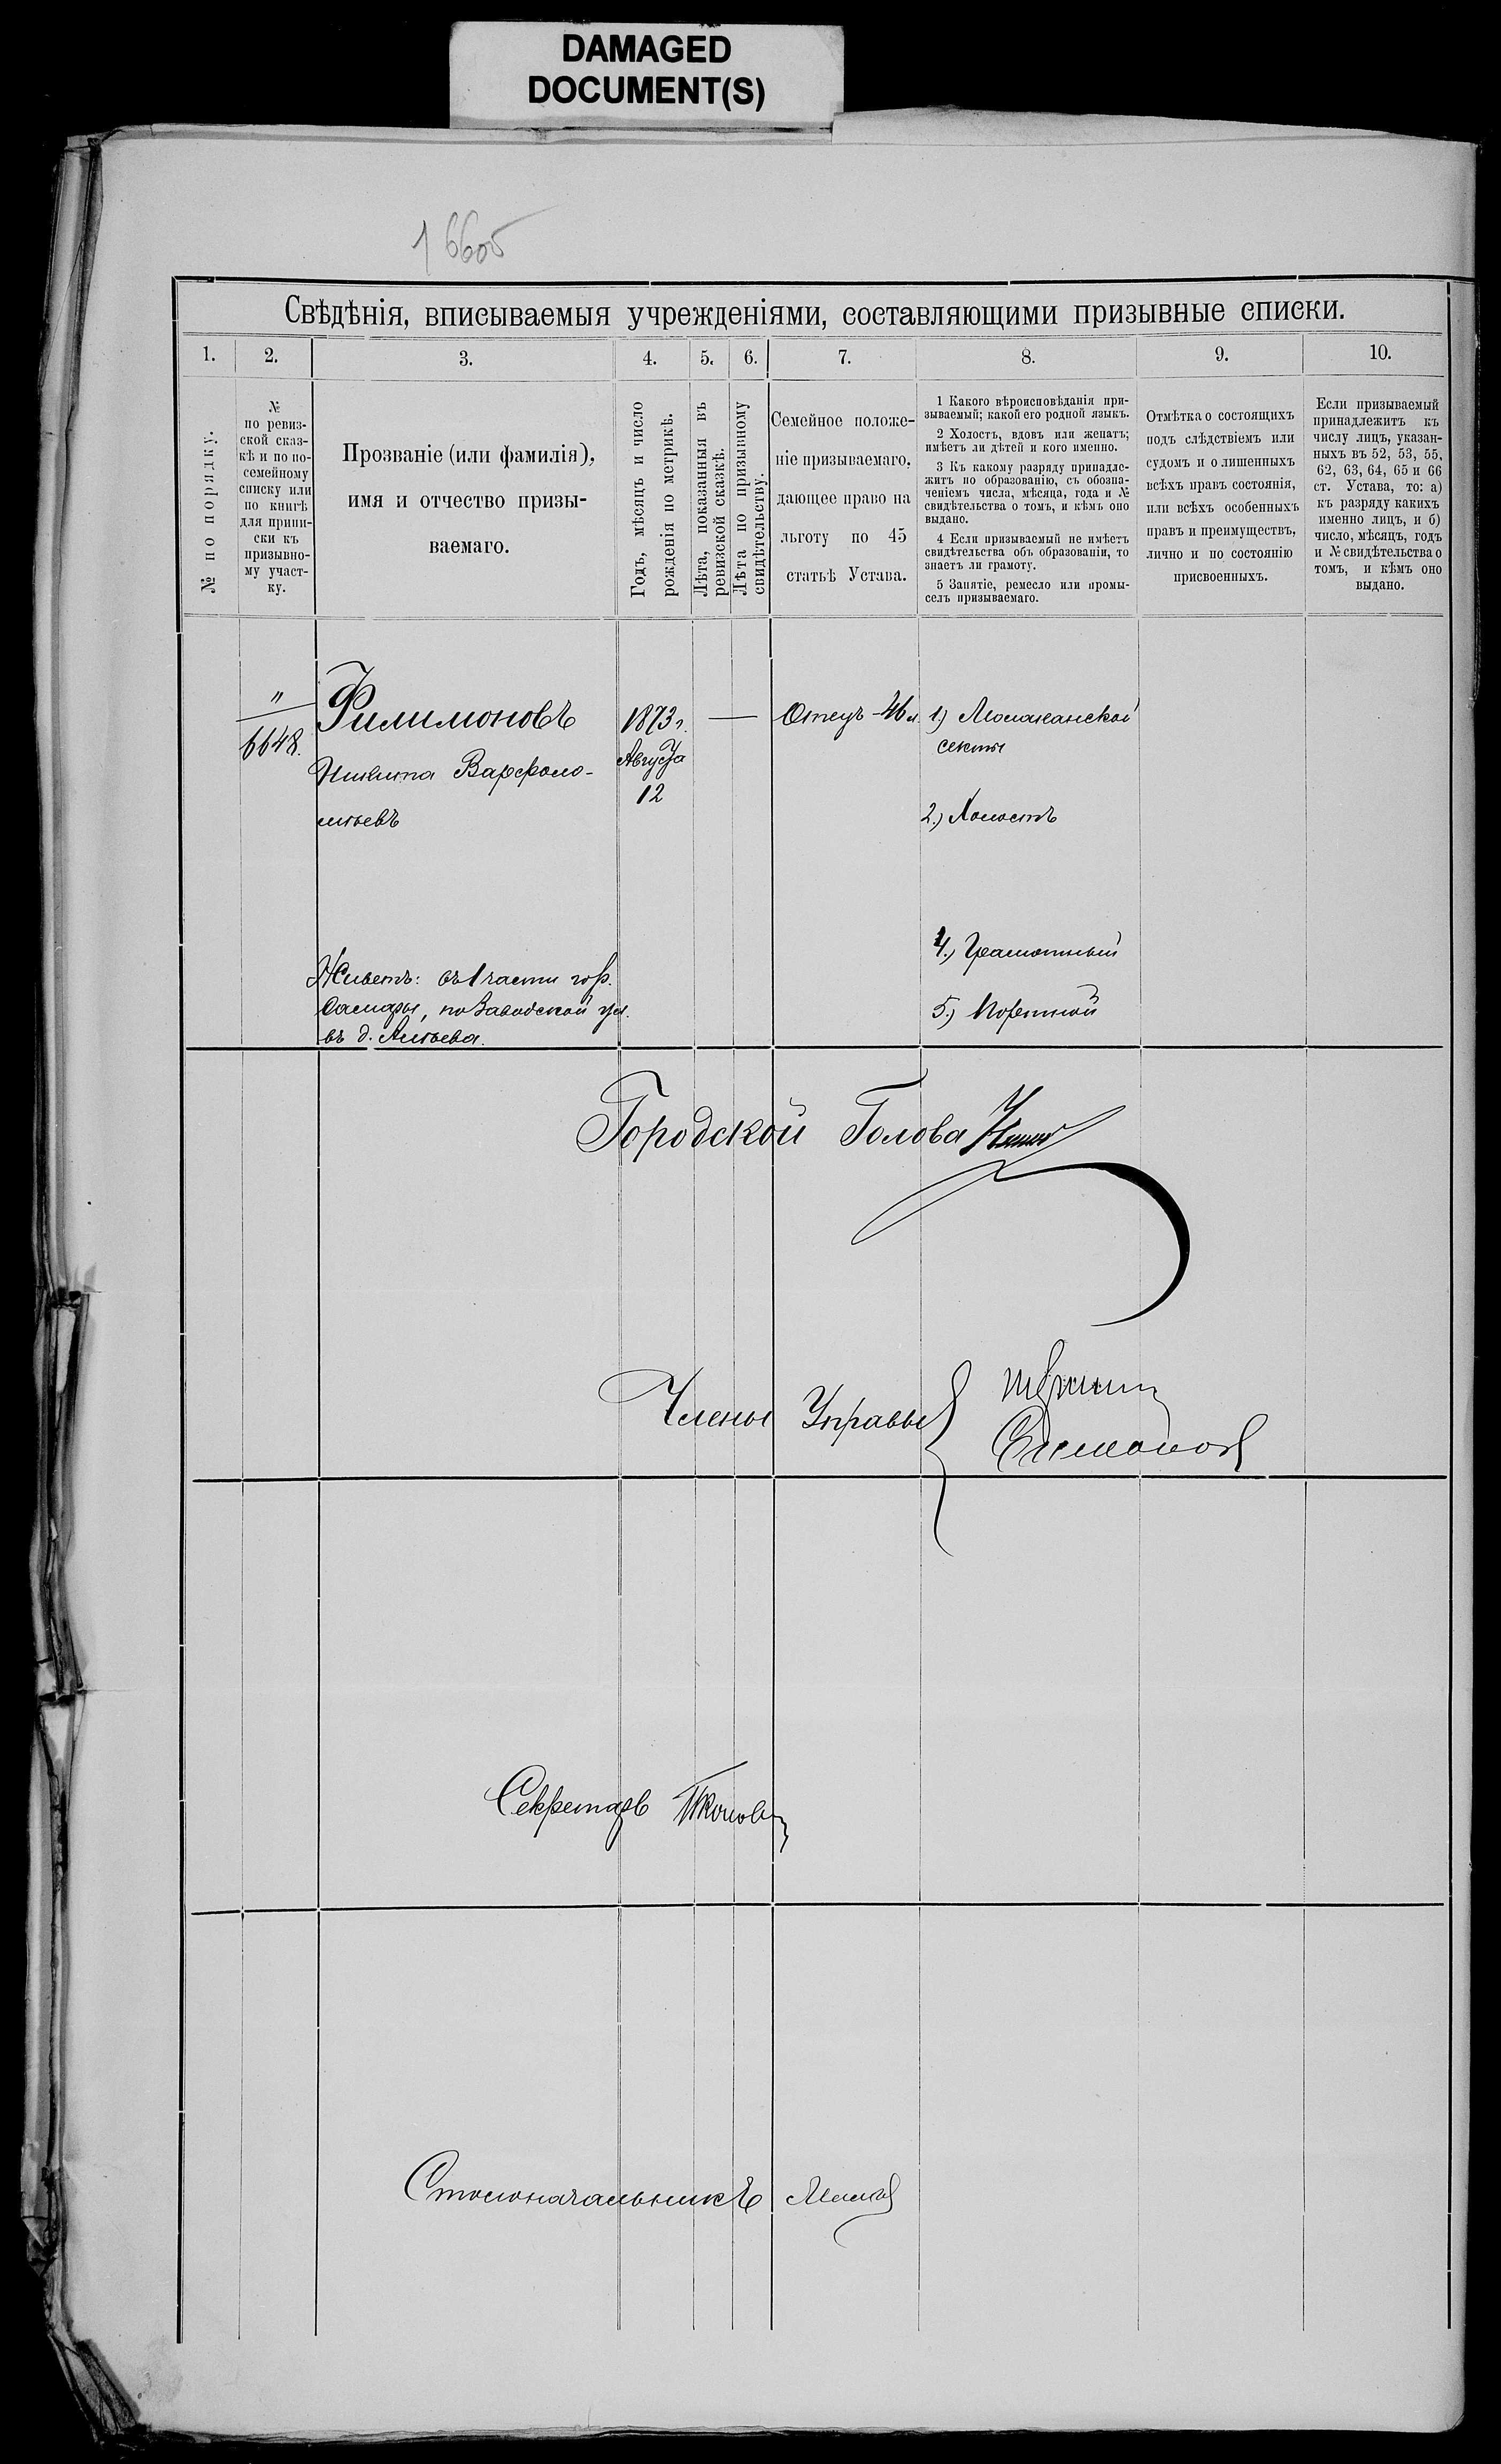 DAMAGED
DOCUMENT(S)
Свѣдѣнія, вписываемыя учрежденіями, составляющими призывные списки.
1.
2.
3.
4.
5.
6.
7.
8.
9.
10.
№ по порядку.
№
по ревиз-
ской сказ-
кѣ и по по-
семейному
списку или
по книгѣ
для припи-
ски къ
призывно-
му участ-
ку.
Прозваніе (или фамилія),
имя и отчество призы-
ваемаго.
Годъ, мѣсяцъ и число
рожденія по метрикѣ.
Лѣта, показанныя въ
ревизской сказкѣ.
Лѣта по призывному
свидѣтельству.
Семейное положе-
ніе призываемаго,
дающее право на
льготу по 45
статьѣ Устава.
1 Какого вѣроисповѣданія при-
зываемый; какой его родной языкъ.
2 Холостъ, вдовъ или женатъ;
имѣетъ ли дѣтей и кого именно.
3 Къ какому разряду принадле-
житъ по образованію, съ обозна-
ченіемъ числа, мѣсяца, года и №
свидѣтельства о томъ, и кѣмъ оно
выдано.
4 Если призываемый не имѣетъ
свидѣтельства объ образованіи, то
знаетъ ли грамоту.
5 Занятіе, ремесло или промы-
селъ призываемаго.
Отмѣтка о состоящихъ
подъ слѣдствіемъ или
судомъ и о лишенныхъ
всѣхъ правъ состоянія,
или всѣхъ особенныхъ
правъ и преимуществъ,
лично и по состоянію
присвоенныхъ.
Если призываемый
принадлежитъ къ
числу лицъ, указан-
ныхъ въ 52, 53, 55,
62, 63, 64, 65 и 66
ст. Устава, то: а)
къ разряду какихъ
именно лицъ, и б)
число, мѣсяцъ, годъ
и № свидѣтельства о
томъ, и кѣмъ оно
выдано.
"
6648.
Филимоновъ
Никита Варфоло-
мѣевъ
1873 г.
Августа
12
—
Отецъ - 46 л.
1) Молоканской
секты
2.) Холостъ
4.) Грамотный
5.) Портной
Живетъ: въ 1 части гор.
Самары, по Заводской ул.
въ д.
Городской Голова
Члены Управы
Секретарь
Столоначальникъ